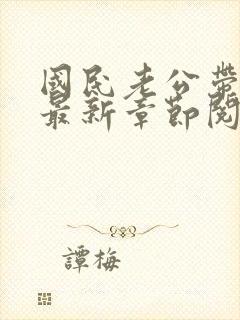 國民老公帶
最新章節閱
譚梅